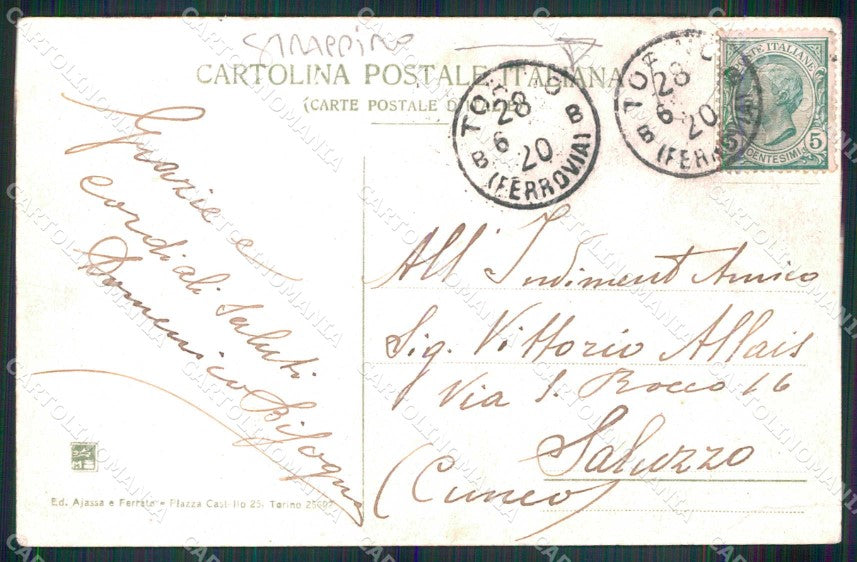 STRAPPINO
CARTOLINA POSTALE ITALIANA
(CARTE POSTALE D'ITALIE)
TORINO
28
6 20
B B
(FERROVIA)
TORINO
28
6 20
B
(FERROVIA)
POSTE ITALIANE
5 5
CENTESIMI
Grazie e
cordiali saluti
Domenico Bisogno
All' Indiment Amico
Sig. Vittorio Allais
Via S. Rocco 16
Saluzzo
(Cuneo)
Ed. Ajassa e Ferrato - Piazza Castello 25, Torino
CARTOLINOMANIA